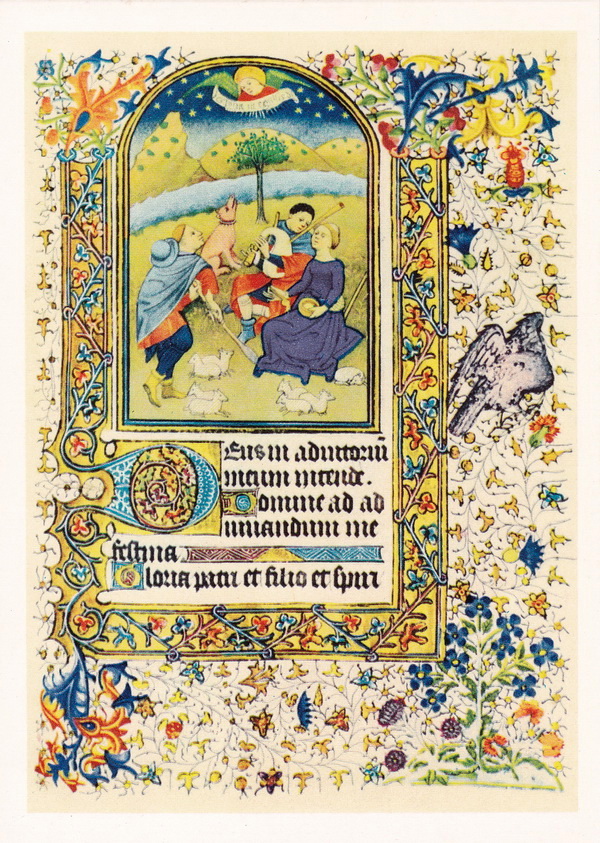 Deus in adiutoriū
meum intende.
Domine ad ad
iuuandum me
festina
Gloria patri et filio et spiri